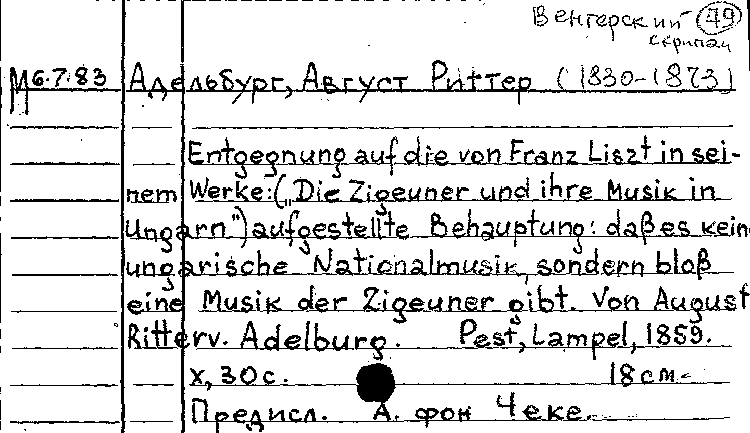 Венгерский 49
скрипач
М6.7.83 Адельбург, Август Риттер (1830-1873)
Entgegnung auf die von Franz Liszt in sei-
nem Werke: („Die Zigeuner und ihre Musik in
Ungarn") aufgestellte Behauptung: daß es kein
ungarische Nationalmusik, sondern bloß
eine Musik der Zigeuner gibt. Von August
Ritter v. Adelburg. Pest, Lampel, 1859.
X, 30 с. 18 см.
Предисл. А. фон Чеке.